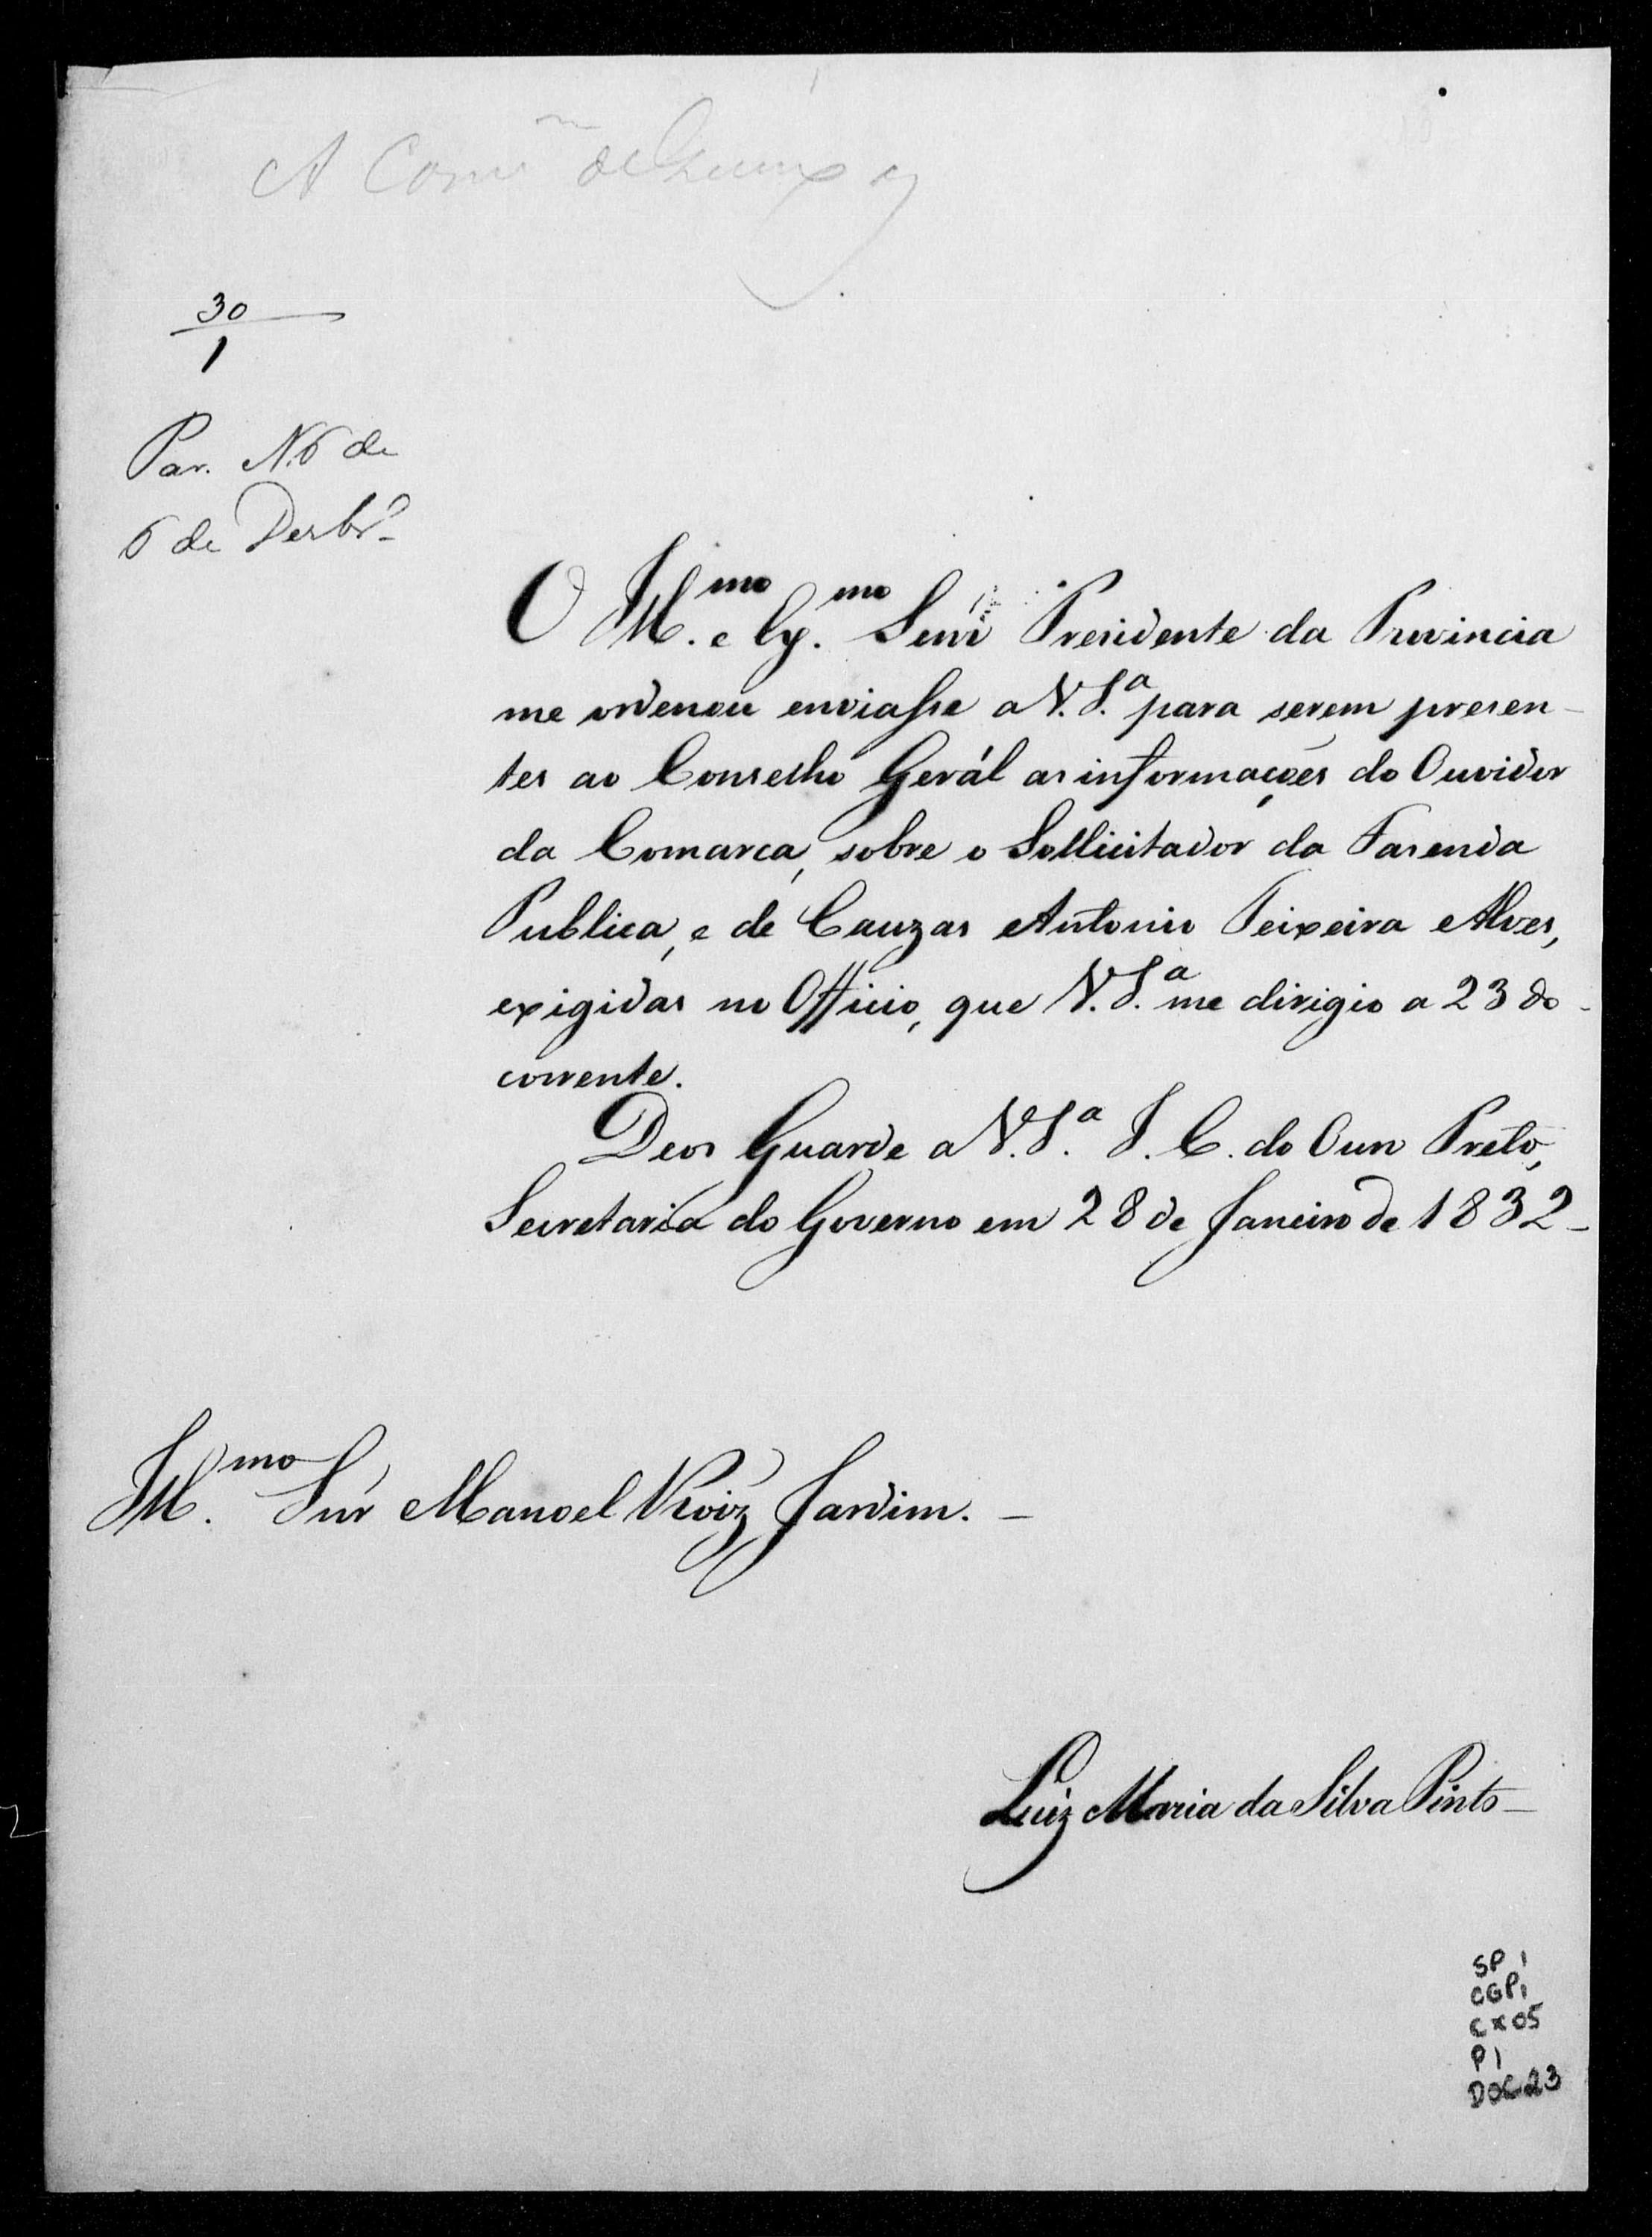 A Com
30
1
Par. N. 6 de
6 de Dezbrº
O Illmo. e Exmo. Senr Presidente da Provincia
me ordenou enviasse a V. Sª para serem presen-
tes ao Conselho Gerál as informações do Ouvidor
da Comarca, sobre o Sollicitador da Fazenda
Publica, e de Cauzas Antonio Teixeira Alves,
exigidas no Officio, que V. Sª me dirigio a 23 do
corrente.
Deos Guarde a V. Sª I. C. do Ouro Preto,
Secretaria do Governo em 28 de Janeiro de 1832 -
Illmo. Snr Manoel Jardim. -
Luiz Maria da Silva Pinto
SP 1
CGP1
CX 05
P1
DOC 23